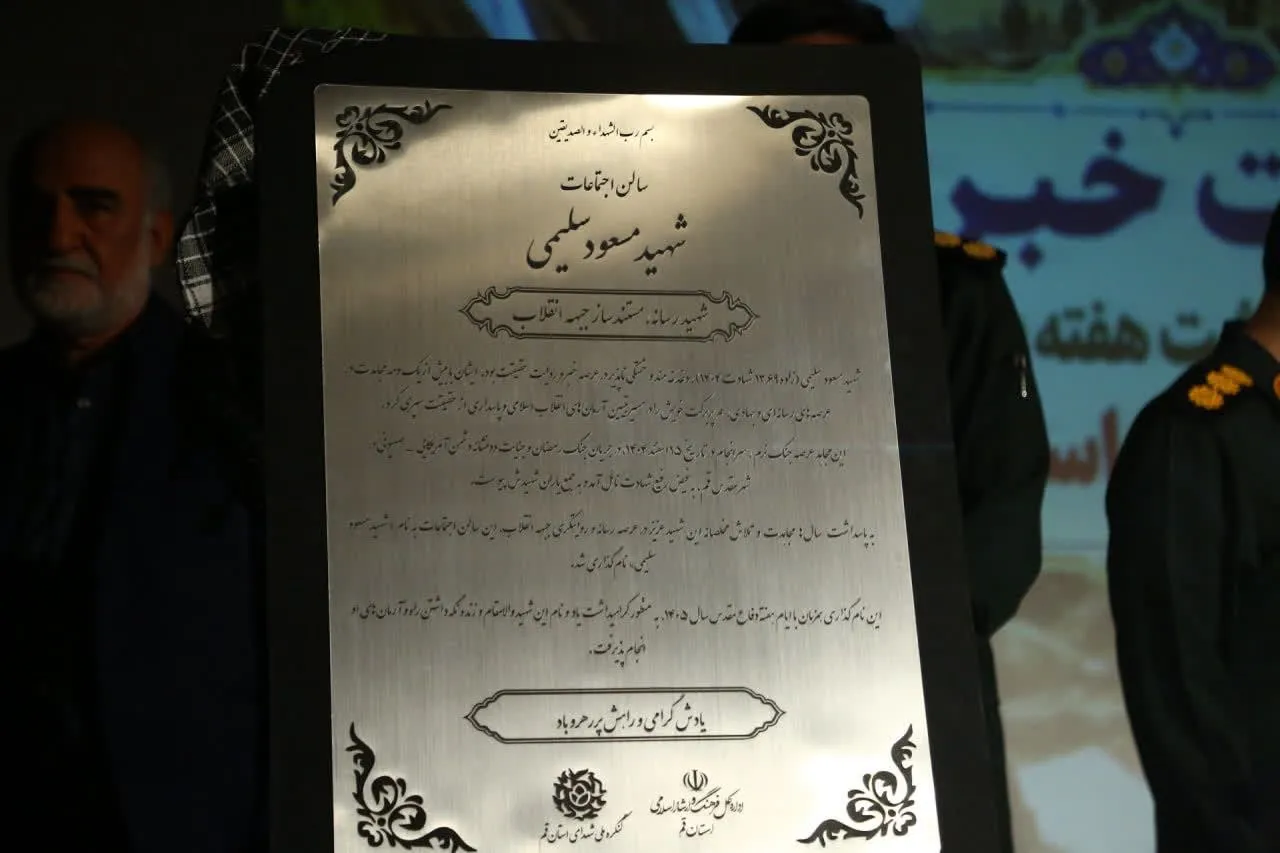 بسم رب الشهداء و الصدیقین
سالن اجتماعات
شهید مسعود سلیمی
شهید رسانه، مستندساز جبهه انقلاب
شهید مسعود سلیمی (زاده ۱۳۶۹ شهادت ۱۴۰۴)، دغدغه مند و خستگی ناپذیر در عرصه خبر و روایت حقیقت بود. ایشان با بیش از یک دهه مجاهدت در
عرصه های رسانه ای و جهادی، عمر پربرکت خویش را در مسیر تبیین آرمان های انقلاب اسلامی و پاسداری از حقیقت سپری کرد.
این مجاهد عرصه جنگ نرم، سرانجام در تاریخ ۱۵ اسفند ۱۴۰۴، در جریان جنگ رمضان و جنایات ددمنشانه دشمن آمریکایی - صهیونی در
شهر مقدس قم، به فیض رفیع شهادت نائل آمد و به جمع یاران شهیدش پیوست.
به پاسداشت سال ها مجاهدت و تلاش مخلصانه این شهید عزیز در عرصه رسانه و روایتگری جبهه انقلاب، این سالن اجتماعات به نام «شهید مسعود
سلیمی» نام گذاری شد.
این نام گذاری همزمان با ایام هفته دفاع مقدس سال ۱۴۰۵، به منظور گرامیداشت یاد و نام این شهید والامقام و زنده نگه داشتن راه و آرمان های او
انجام پذیرفت.
یادش گرامی و راهش پر رهرو باد
اداره کل فرهنگ و ارشاد اسلامی
استان قم
کنگره ملی شهدای استان قم
ت خبر
هفته